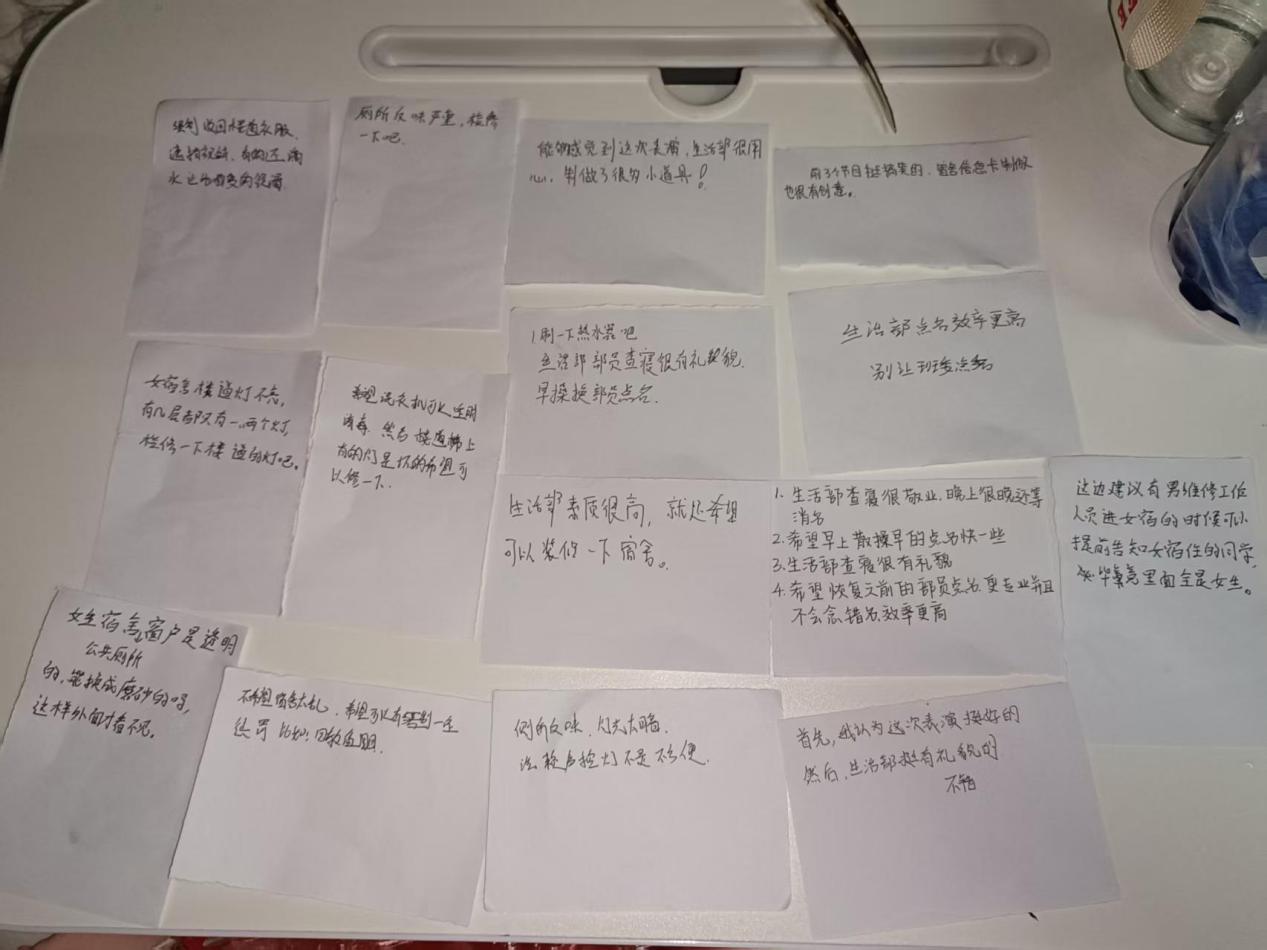 强制收回楼道衣服,
遮挡视线,有的还滴
水
厕所反味严重,检修
一下吧
能够感觉到这次表演,生活部很用
心,制做了很多小道具!
前3个节目挺搞笑的,宿舍信息卡制做
也很有创意。
女宿舍楼道灯不亮,
有几层都只有一两个灯,
检修一下楼道的灯吧。
希望洗衣机可以定时
消毒,然后楼道梯上
有的灯是坏的希望可
以修一下.
1刷一下热水器吧
生活部部员查寝很有礼貌.
早操换部员点名.
生活部点名效率更高
别让班委点名
生活部素质很高,就还希望
可以装修一下宿舍。
1.生活部查寝很敬业,晚上很晚还等
消名
2.希望早上散操早的点名快一些
3.生活部查寝很有礼貌
4.希望恢复之前的部员点名,更专业并且
不会念错名,效率更高
这边建议有男维修工作
人员进女宿的时候可以
提前告知女宿住的同学,
毕竟里面全是女生。
女生宿舍窗户是透明
公共厕所
的,能换成磨砂的吗,
这样外面才看不见。
不希望宿舍太乱,希望可以有
惩罚 比如:
厕所反味,灯光太暗.
声控灯不是不便.
首先,我认为这次表演挺好的
然后,生活部挺有礼貌的
不错